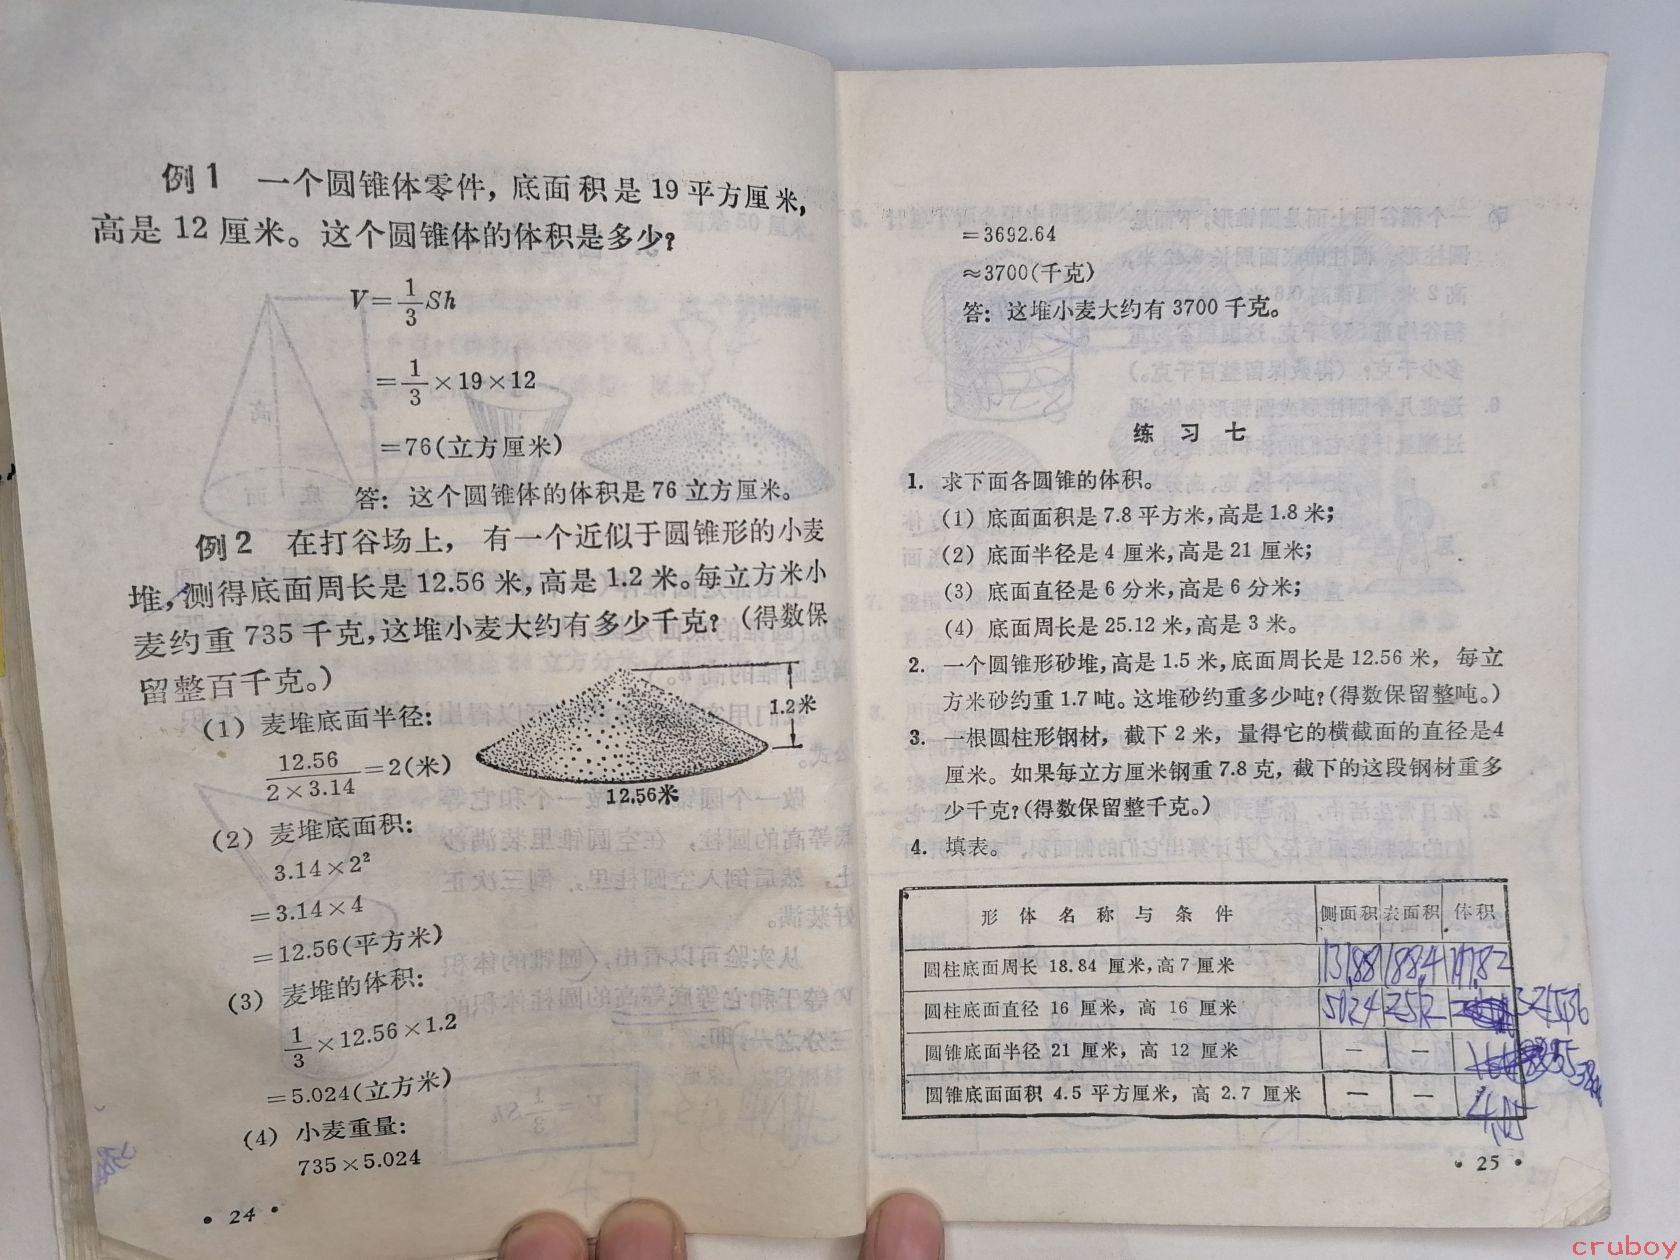 例1 一个圆锥体零件，底面积是19平方厘米，
高是12厘米。这个圆锥体的体积是多少？
V=1/3Sh
=1/3×19×12
=76(立方厘米)
答：这个圆锥体的体积是76立方厘米。
例2 在打谷场上，有一个近似于圆锥形的小麦
堆，测得底面周长是12.56米，高是1.2米。每立方米小
麦约重735千克，这堆小麦大约有多少千克？(得数保
留整百千克。)
(1) 麦堆底面半径：
12.56/(2×3.14)=2(米)
1.2米
12.56米
(2) 麦堆底面积：
3.14×2²
=3.14×4
=12.56(平方米)
(3) 麦堆的体积：
1/3×12.56×1.2
=5.024(立方米)
(4) 小麦重量：
735×5.024
• 24 •
=3692.64
≈3700(千克)
答：这堆小麦大约有3700千克。
练习七
1. 求下面各圆锥的体积。
(1) 底面面积是7.8平方米，高是1.8米；
(2) 底面半径是4厘米，高是21厘米；
(3) 底面直径是6分米，高是6分米；
(4) 底面周长是25.12米，高是3米。
2. 一个圆锥形砂堆，高是1.5米，底面周长是12.56米，每立
方米砂约重1.7吨。这堆砂约重多少吨？(得数保留整吨。)
3. 一根圆柱形钢材，截下2米，量得它的横截面的直径是4
厘米。如果每立方厘米钢重7.8克，截下的这段钢材重多
少千克？(得数保留整千克。)
4. 填表。
形体名称与条件 侧面积 表面积 体积
圆柱底面周长 18.84 厘米，高7厘米 131.88 188.4 197.82
圆柱底面直径 16 厘米，高 16 厘米
圆锥底面半径 21 厘米，高 12 厘米 — —
圆锥底面面积 4.5 平方厘米，高 2.7 厘米 — — 4.05
• 25 •
cruboy